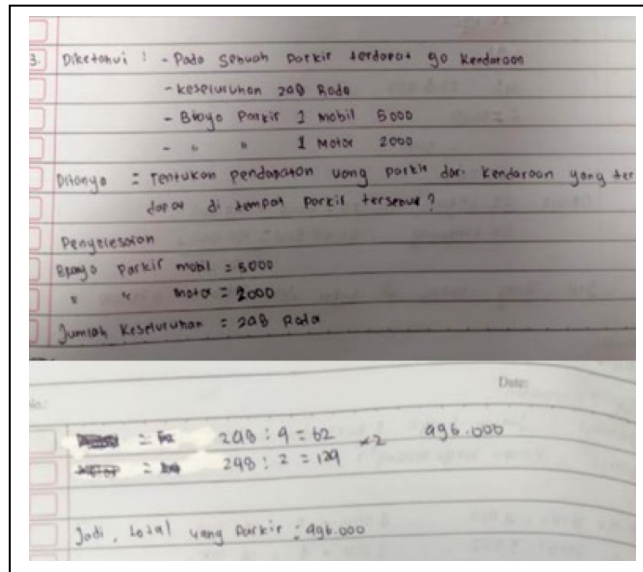 3. Diketahui : - Pada sebuah parkir terdapat 90 kendaraan
- keseluruhan 248 Roda
- Biaya Parkir 1 Mobil 5000
- " " 1 Motor 2000
Ditanya = Tentukan pendapatan uang parkir dari kendaraan yang ter
dapat di tempat parkir tersebut?
Penyelesaian
Biaya Parkir mobil = 5000
" " motor = 2000
Jumlah Keseluruhan = 248 Roda
No:
Date:
= 248 : 4 = 62 ×2 496.000
= 248 : 2 = 124
Jadi, total uang Parkir : 496.000